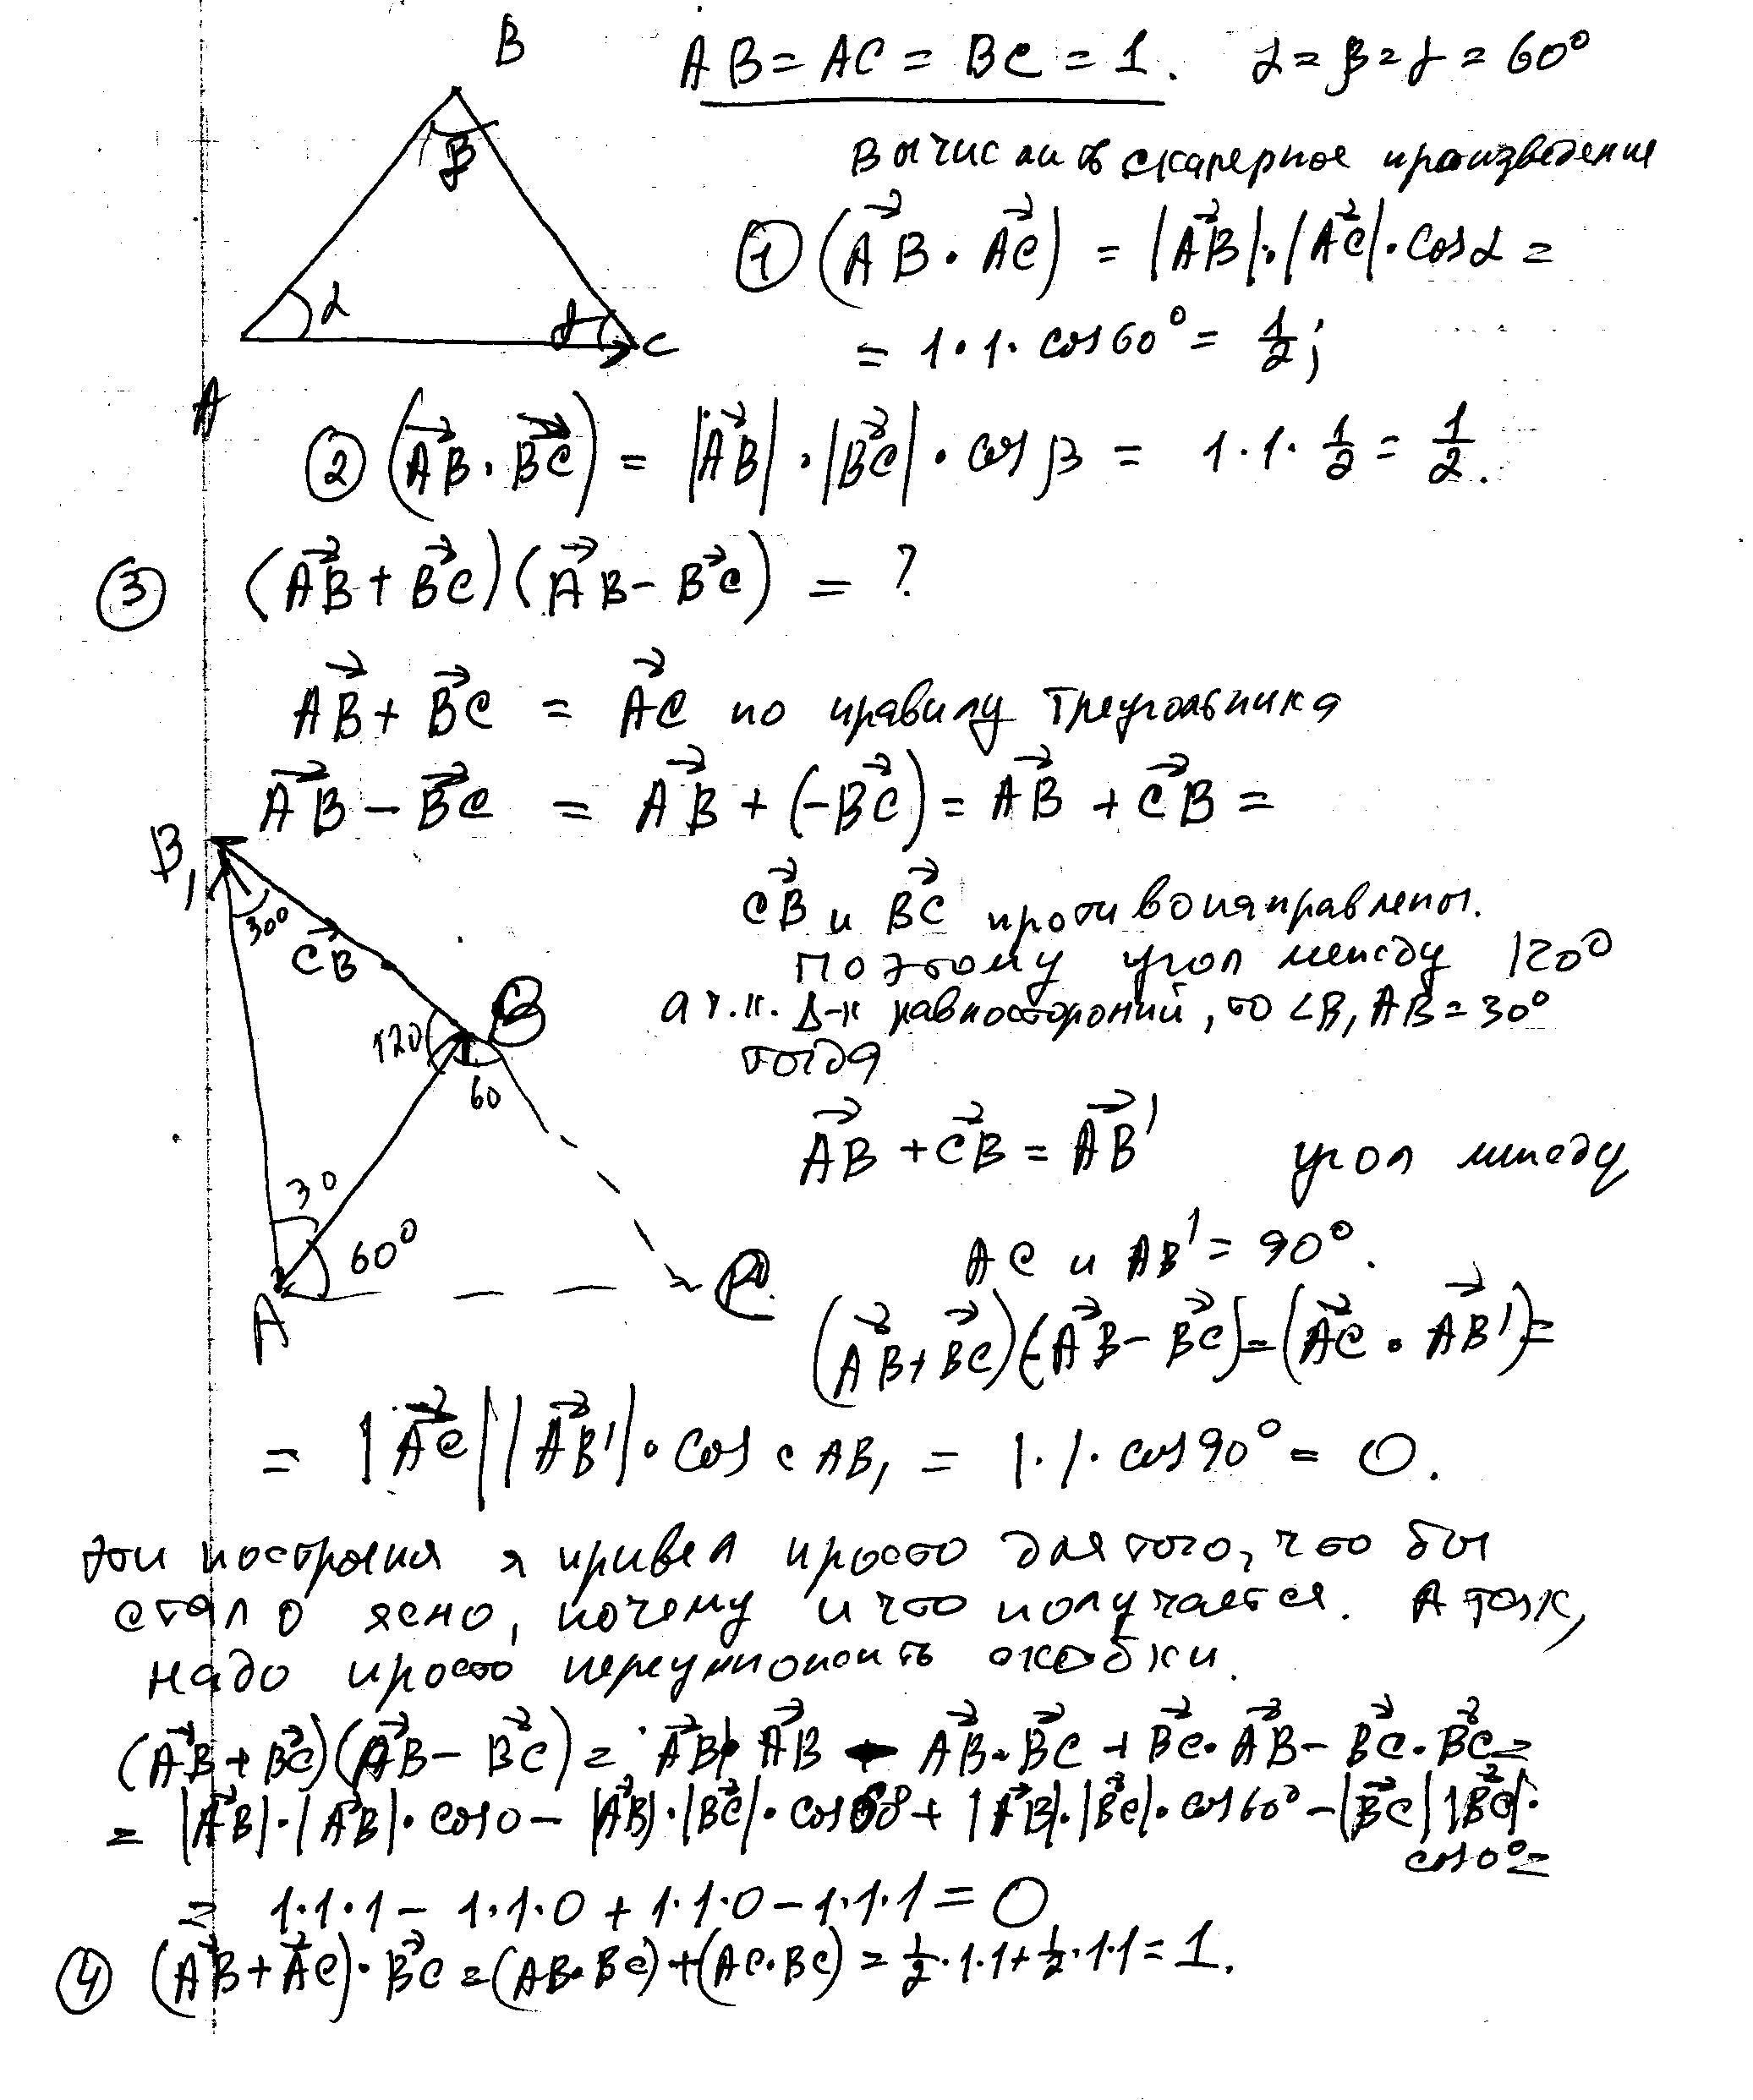 B
AB = AC = BC = 1. α = β = γ = 60°
β
Вычислить скалярное произведение
① (AB · AC) = |AB| · |AC| · cos α =
α γ C
= 1 · 1 · cos 60° = 1/2;
A
② (AB · BC) = |AB| · |BC| · cos β = 1 · 1 · 1/2 = 1/2.
③ (AB + BC)(AB − BC) = ?
AB + BC = AC по правилу треугольника
AB − BC = AB + (−BC) = AB + CB =
B₁
30°
CB
CB и BC противонаправлены.
Поэтому угол между 120°
а т.к. Δ-к равностороний, то ∠B₁AB = 30°
тогда
B
120
60
AB + CB = AB' угол между
30
60°
AC и AB' = 90°.
A C
(AB + BC)(AB − BC) = (AC · AB') =
= |AC| |AB'| · cos CAB₁ = 1 · 1 · cos 90° = 0.
эти построения я привел просто для того, что бы
стало ясно, почему и что получается. А так,
надо просто перемножить скобки.
(AB + BC)(AB − BC) = AB · AB − AB · BC + BC · AB − BC · BC =
= |AB| · |AB| · cos 0 − |AB| · |BC| · cos 60 + |AB| · |BC| · cos 60° − |BC| |BC| ·
cos 0° =
= 1·1·1 − 1·1·0 + 1·1·0 − 1·1·1 = 0
④ (AB + AC) · BC = (AB · BC) + (AC · BC) = 1/2 · 1·1 + 1/2 · 1·1 = 1.